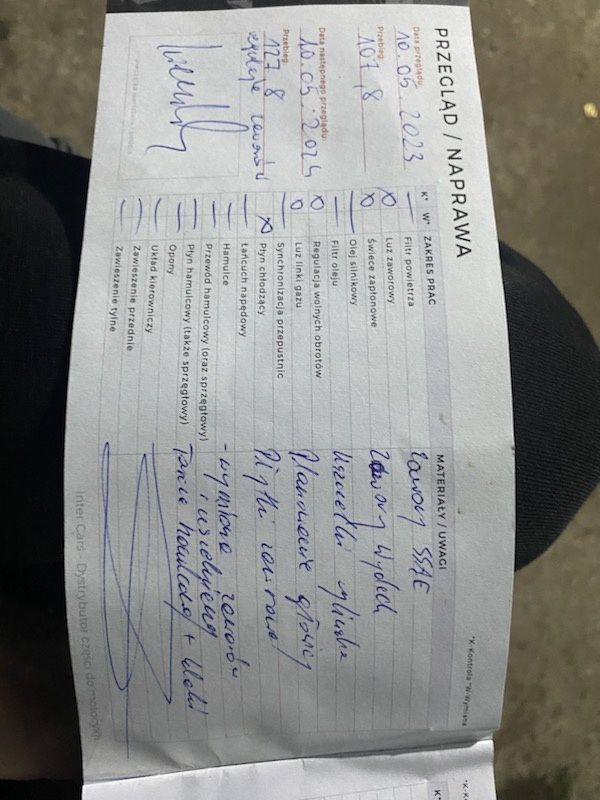 PRZEGLĄD / NAPRAWA
*K-Kontrola *W-Wymiana
Data przeglądu:
10.05.2023
Przebieg:
107,8
Data następnego przeglądu:
10.05.2024
Przebieg:
127,8
K* W* ZAKRES PRAC MATERIAŁY / UWAGI
— Filtr powietrza zawory SSĄE
x Luz zaworowy Zawory Wydech
x Świece zapłonowe Uszczelki
— Olej silnikowy Planowanie głowicy
— Filtr oleju Płytki zaworowe
x Regulacja wolnych obrotów - wymiana zaworów
o Luz linki gazu i uszczelnienia
— Synchronizacja przepustnic
x Płyn chłodzący
— Łańcuch napędowy
— Hamulce
— Przewód hamulcowy (oraz sprzęgłowy)
— Płyn hamulcowy (także sprzęgłowy)
— Opony
— Układ kierowniczy
— Zawieszenie przednie
— Zawieszenie tylne
Inter Cars - Dystrybutor części do motocykli
*K-K
K*